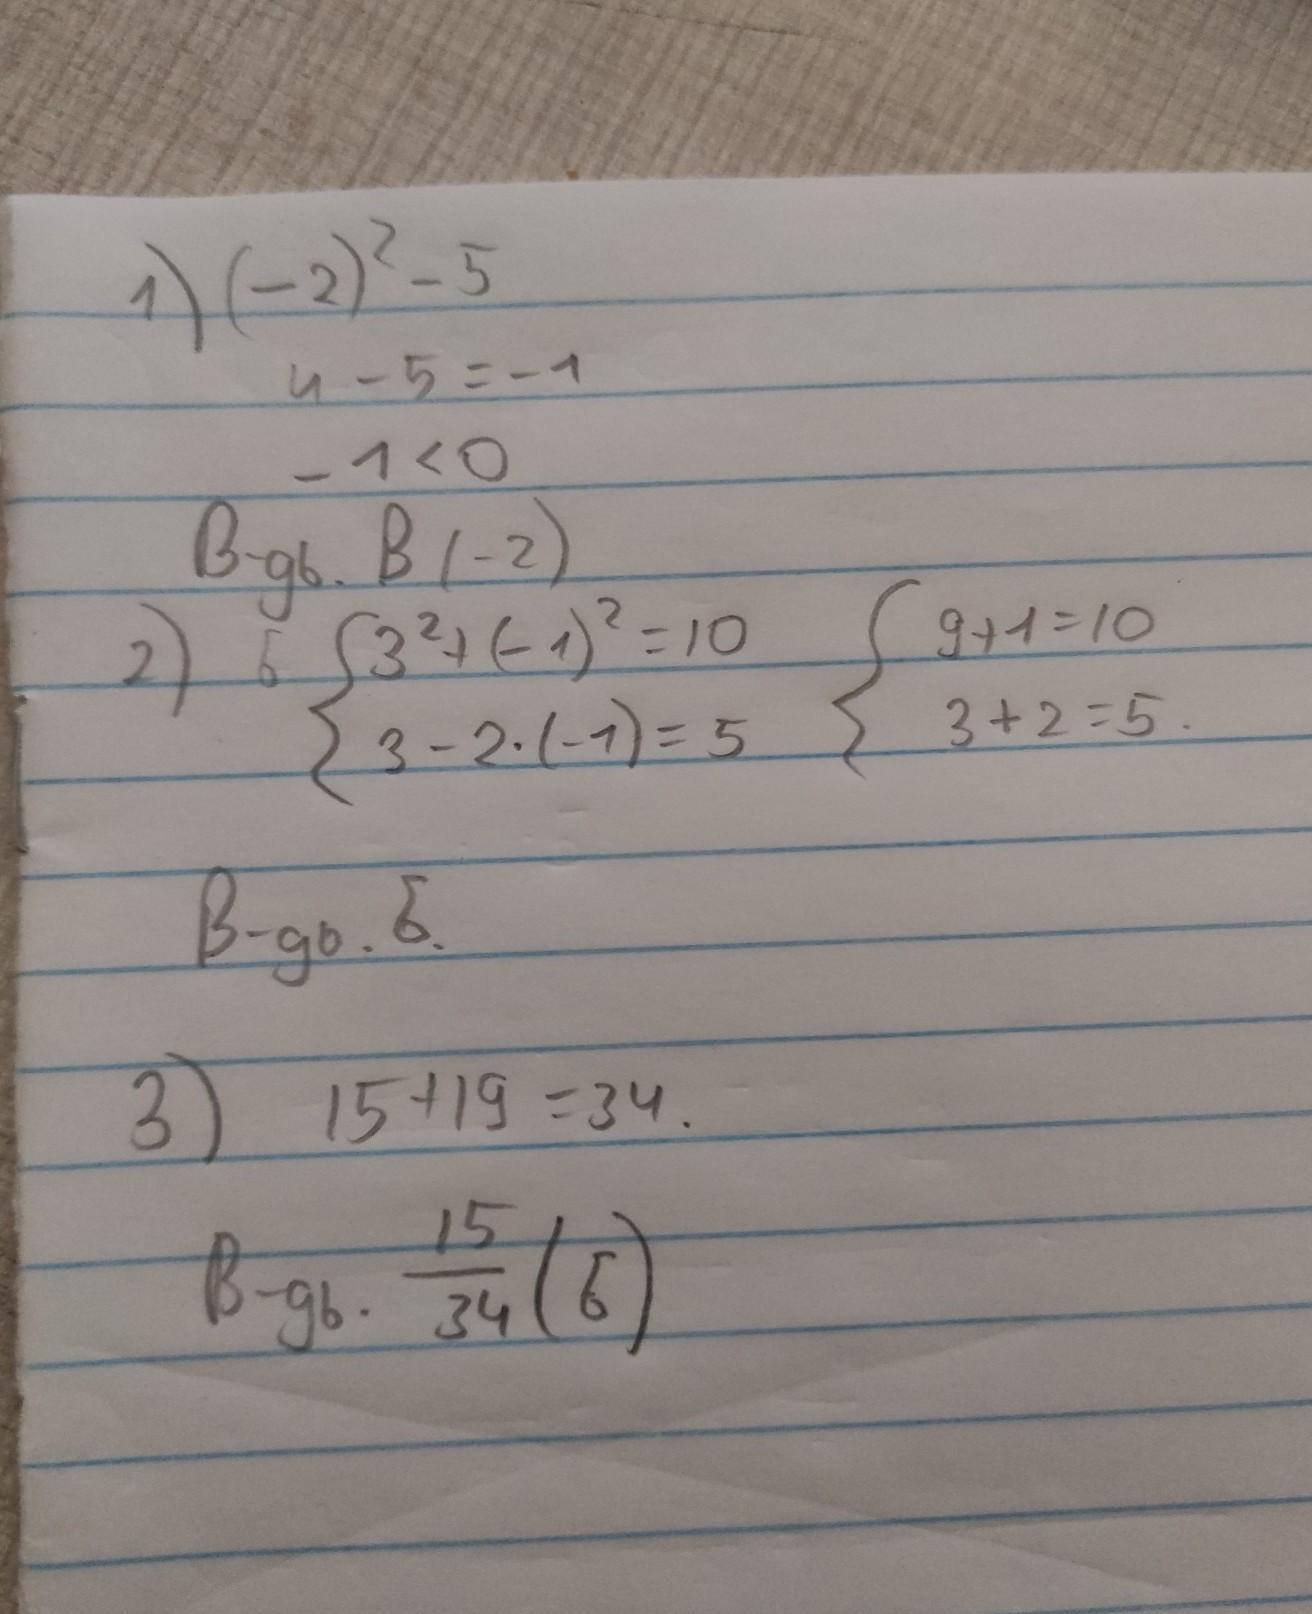 1) (-2)² - 5
4 - 5 = -1
-1 < 0
В-дь. В (-2)
2) б { 3² + (-1)² = 10 { 9 + 1 = 10
3 - 2·(-1) = 5 3 + 2 = 5.
В-дь. б.
3) 15 + 19 = 34.
В-дь. 15/34 (б)